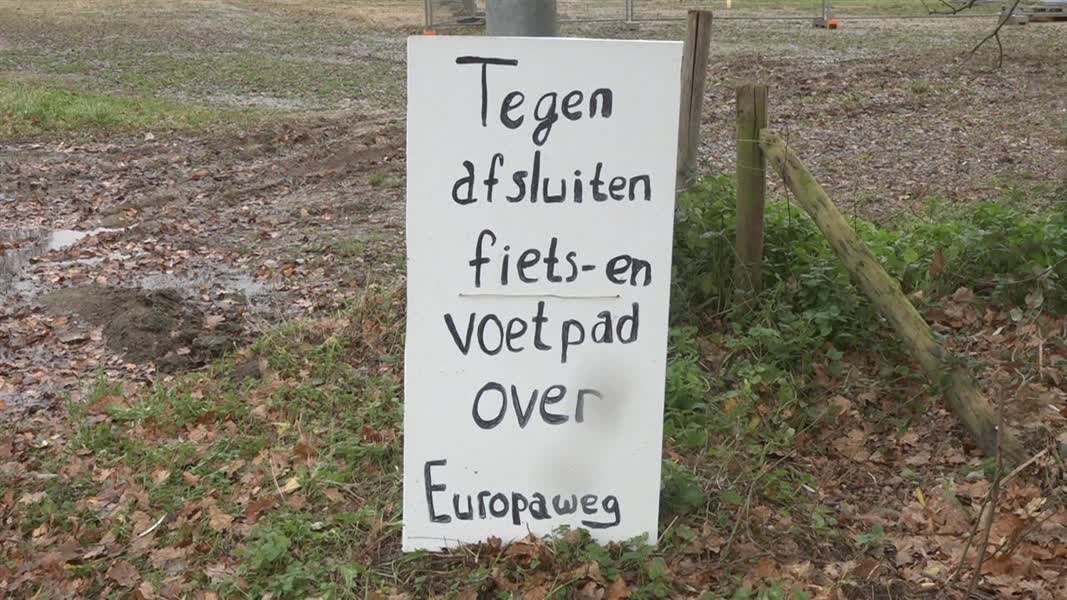 Tegen
afsluiten
fiets-en
voetpad
over
Europaweg